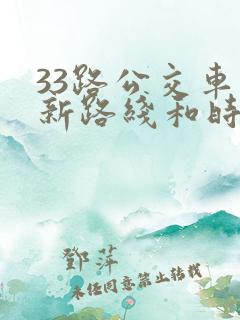 33路公交车
新路綫和时
鄧萍
未经同意禁止转载